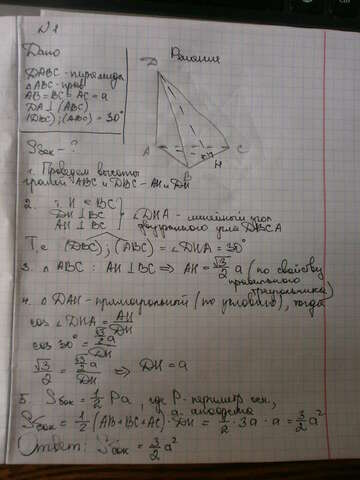 N 1
Дано
Решение
DABC - пирамида
△ABC - прав
AB = BC = AC = a
DA ⊥ (ABC)
(DBC);(ABC) = 30°
Sбок - ?
D
A
B
C
H
1. Проведем высоты
граней ABC и DBC - AH и DH
2. т. H ∈ BC
DH ⊥ BC
AH ⊥ BC
∠DHA - линейный угол
двугранного угла DBCA
Т.е (DBC);(ABC) = ∠DHA = 30°
3. △ABC: AH ⊥ BC ⇒ AH = √3/2 a (по свойству
правильного
треугольника)
4. △DAH - прямоугольный (по условию), тогда
cos ∠DHA = AH/DH
cos 30° = √3/2 a/DH
√3/2 = √3/2 a/DH ⇒ DH = a
5. Sбок = 1/2 Pa, где P - периметр осн,
a - апофема
Sбок = 1/2 (AB+BC+AC) · DH = 1/2 · 3a · a = 3/2 a²
Ответ: Sбок = 3/2 a²